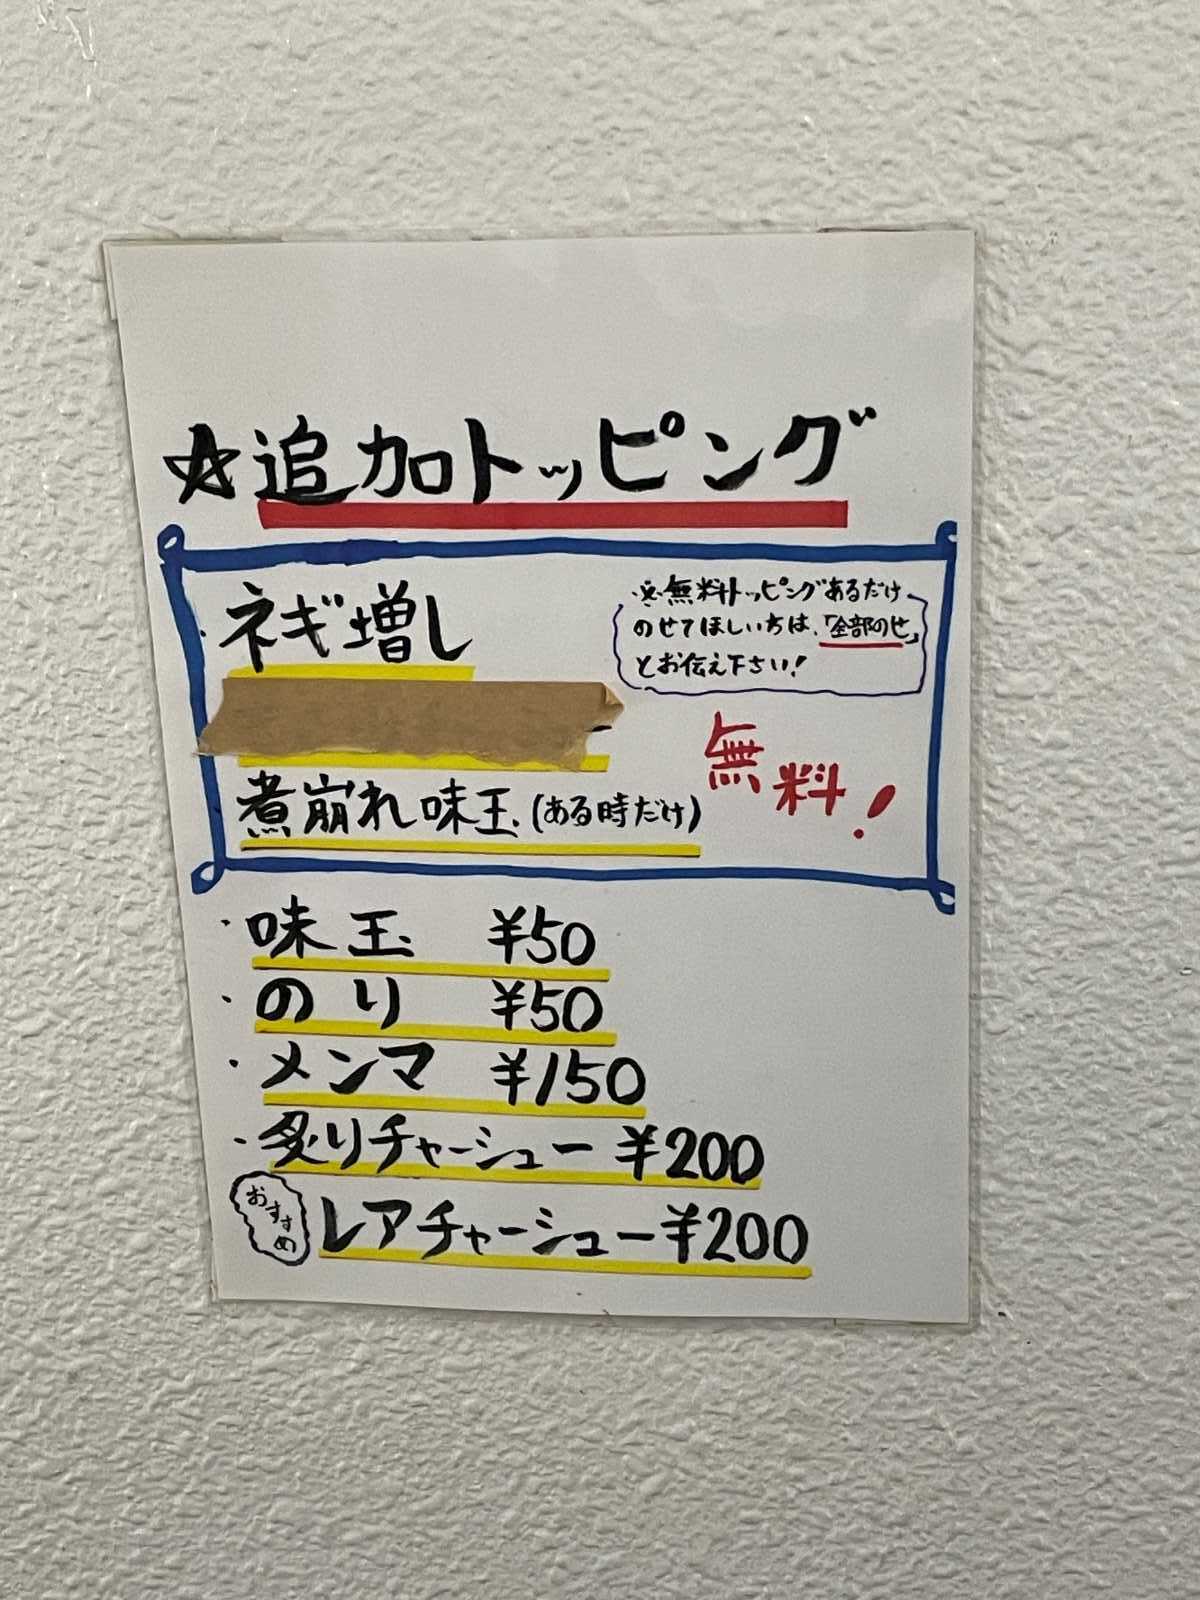 ☆追加トッピング
ネギ増し
※無料トッピングあるだけ
のせてほしい方は、「全部のせ」
とお伝え下さい!
無料!
煮崩れ味玉(ある時だけ)
・味玉 ¥50
・のり ¥50
・メンマ ¥150
・炙りチャーシュー ¥200
おすすめ レアチャーシュー ¥200